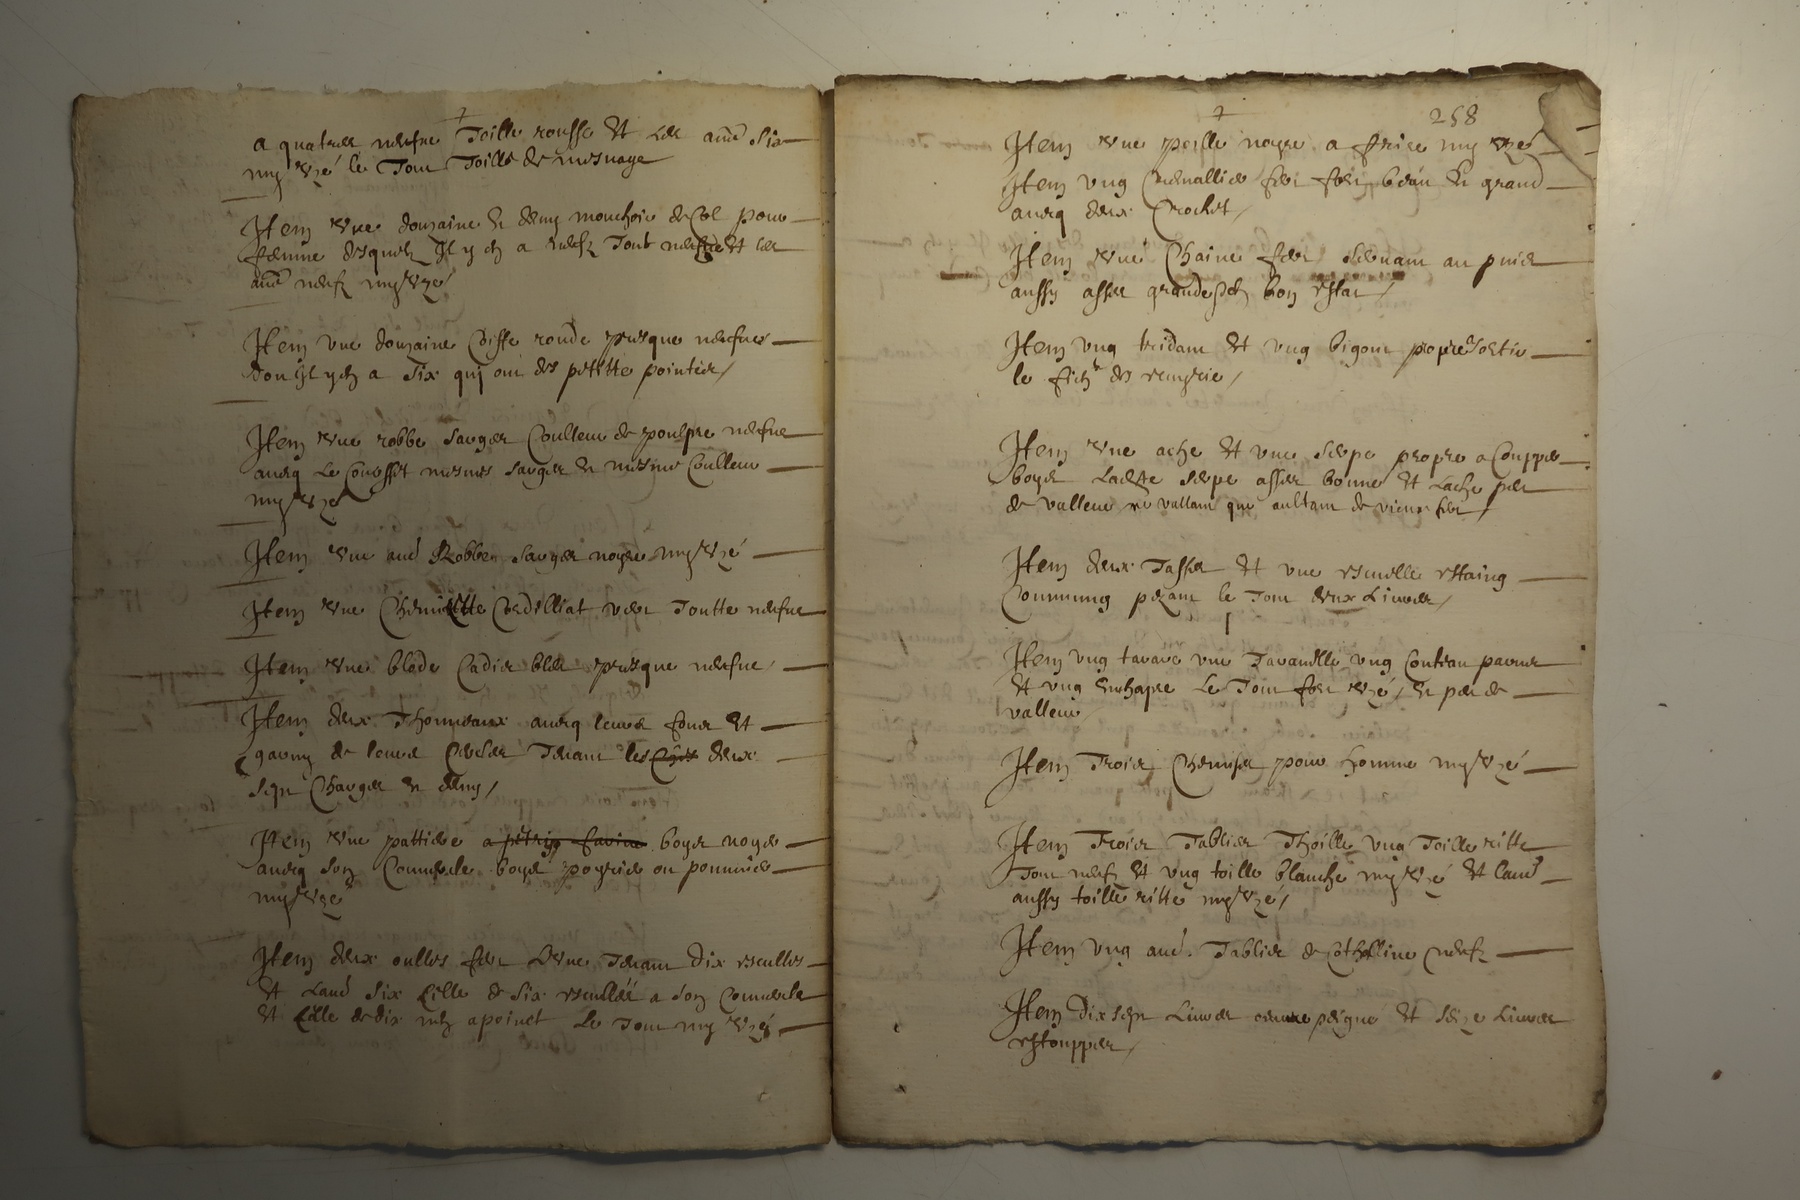 a quatre neufve Toille rousse Et Les au͠e Six
my Vzé le Tout Toille de mesnage
Item Vne douzaine & demy mouchoir de Col pour
femme desquelz Il y en a neufz Tout neufve Et les
au͠e neufz my Vzé
Item vne douzaine Coiffe ronde presque neufves
don Il y en a Six qui ont des petitte pointes /
Item Vne robbe sarges Couleur de pourpre neufve
aueq Le Coursset mesmes sarges & mesme Coulleur
my Vzé
Item Vne au͠e Robbe sarges noyre my Vzé
Item Vne Chemisette Cordilliat vert Toutte neufve
Item Vne blode Cadis bleu presque neufve /
Item deux Thonneaux aueq leurs fonds Et
garny de leurs Cercles Tenant les deux
sept Charges & demy /
Item Vne pattiere a pétrir farine boyes noyer
aueq son Couuercle boyes
my Vzé
Item deux oulles fer L'vne Tenant Dix escuelles
Et L'aue Six Celle de Six escuelles a son Couuercle
Et Celle de dix n'en a point Le Tout my Vzé
258
Item Vne poille noyre a frire my Vzé
Item Vng Cremallies fer fort beau & grand
aueq deux Crochet /
Item Vne Chaine fer seruant au puis
aussy asses grande & en bon estat /
Item Vng tridant Et Vng bigout propre Sortir
le fien des
Item Vne ache Et vne serpe propre a Coupper
boyes Ladte serpe asses bonne Et L'ache peu
de valleur ne vallant que aultant de vieux fer /
Item deux Tasses Et vne escuelle estaing
Commung pezant le Tout deux Liures /
Item Vng tarare vne Tarauelle Vng Couteau pareur
Et Vng enchapre Le Tout fer Vzé, & peu de
valleur
Item Trois Chemises pour homme my Vzé
Item Trois Tablier Thoille Vng Toille ritte
Tout neufz Et Vng toille blanche my Vzé Et l'aue
aussy toille ritte my Vzé /
Item Vng au͠e Tablier de Cothelline neufz
Item Dix sept Liures œuure peigne Et seize Liures
estouppes /